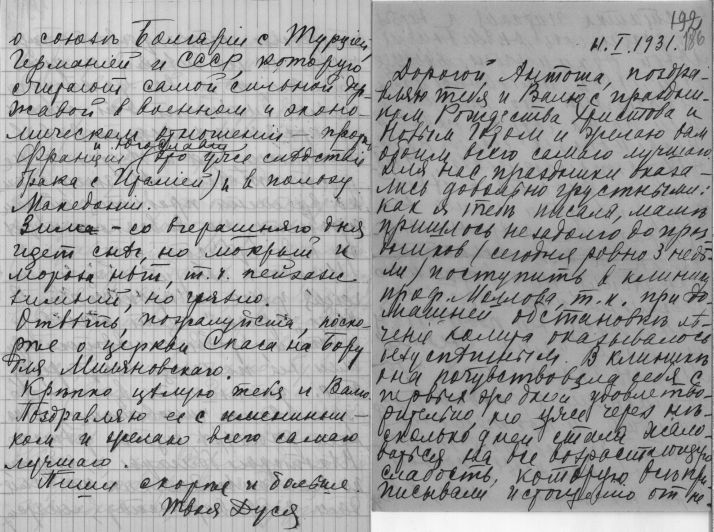 о союзѣ Болгаріи с Турціей,
Германіей и СССР, которую
считают самой сильной дер-
жавой в военном и эконо-
мическом отношеніи — проти
и Югославіи
Франціи (это уже слѣдствіе
брака с Италіей) и в пользу
Македоніи.
Зима — со вчерашняго дня
идет снѣг, но мокрый и
мороза нѣт, т.ч. пейзаж
зимній, но грязно.
Отвѣть, пожалуйста, поско-
рѣе о церкви Спаса на Бору
для Миляновскаго.
Крѣпко цѣлую тебя и Валю.
Поздравляю ее с имянинни-
ком и желаю всего самаго
лучшаго.
Пиши скорѣе и больше.
Твоя Дуся
192
186
11.I.1931.
Дорогой Антоша, поздра-
вляю тебя и Валю с праздни-
ком Рождества Христова и
Новым Годом и желаю вам
обоим всего самаго лучшаго.
Для нас праздники оказа-
лись довольно грустными:
как я тебѣ писала, мамѣ
пришлось незадолго до праз-
дников (сегодня ровно 3 недѣ-
ли) поступить в клинику
проф. Моллова, т.к. при до-
машней обстановкѣ лѣ-
ченіе колита оказывалось
безуспѣшным. В клиникѣ
она почувствовала себя с
первых же дней удовлетво-
рительно, но уже через нѣ-
сколько дней стала жало-
ваться на все возрастающую
слабость, которую всѣ при-
писывали истощенію от не-